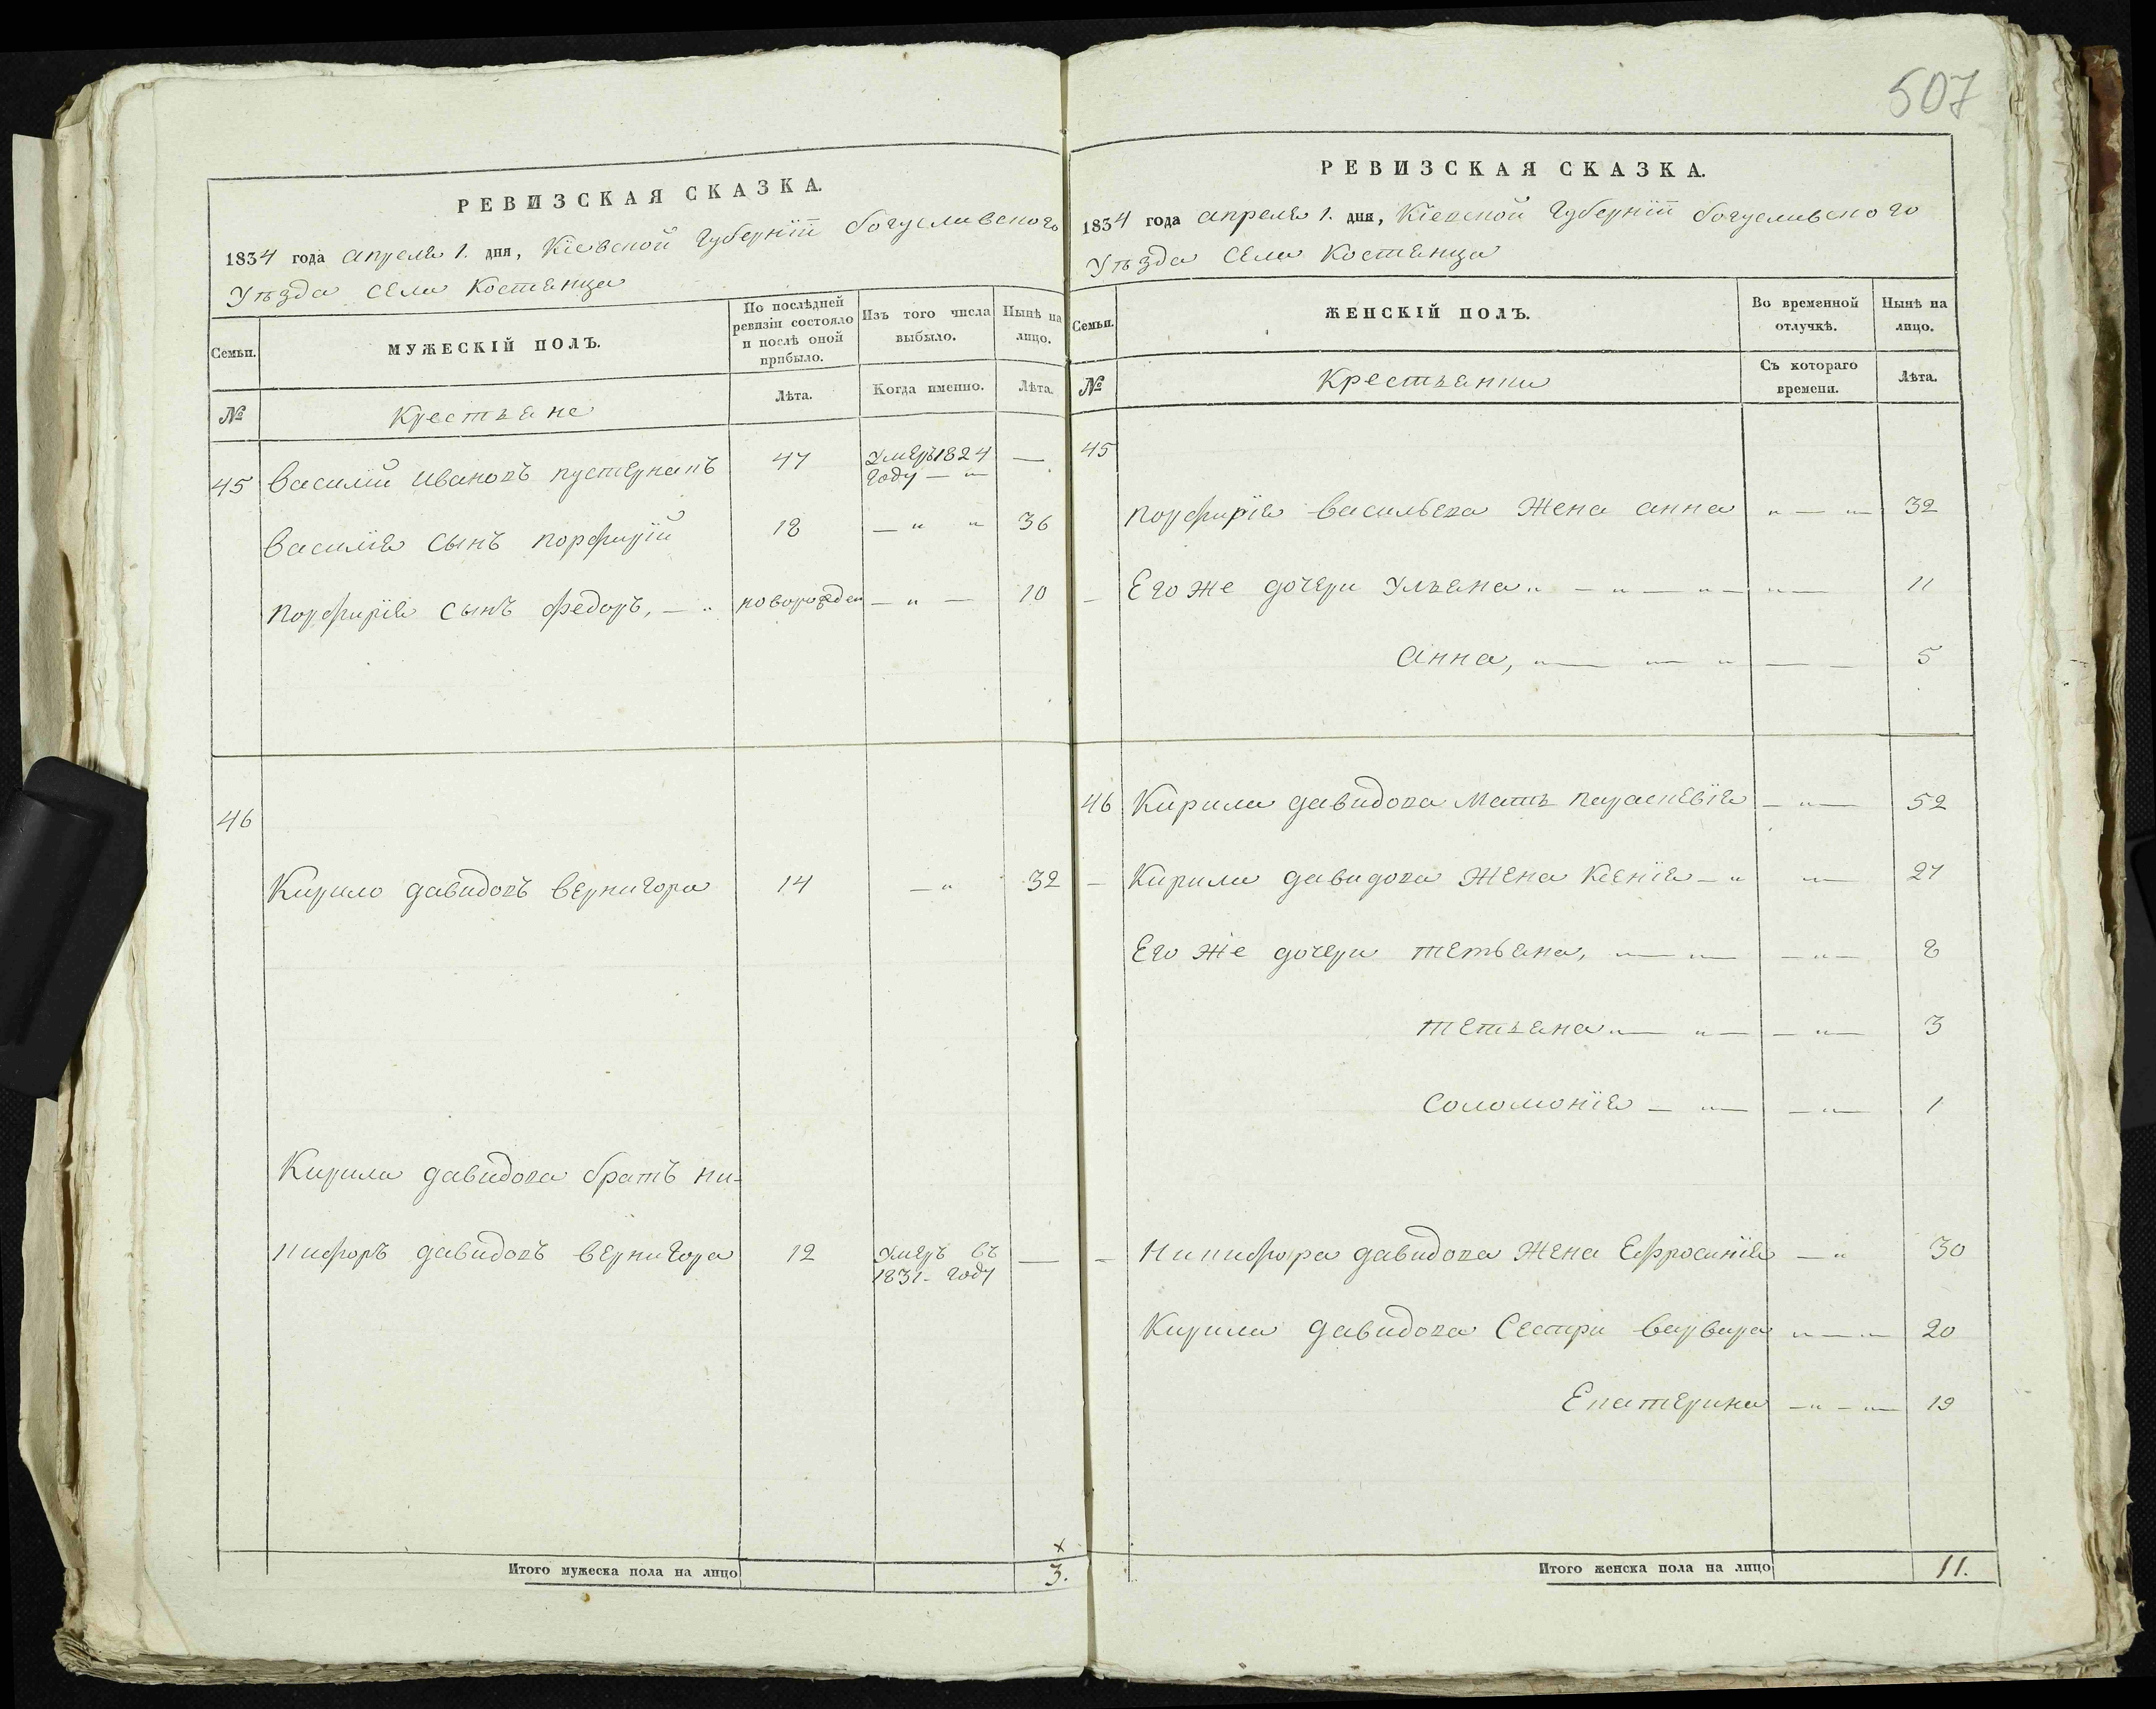 507
РЕВИЗСКАЯ СКАЗКА.
1834 года апреля 1. дня, Кіевской Губерніи богуславского
Уѣзда Села Костянца
Семьи.
МУЖЕСКІЙ ПОЛЪ.
По послѣдней ревизіи состояло и послѣ оной прибыло.
Изъ того числа выбыло.
Нынѣ на лицо.
№
Крестьяне
Лѣта.
Когда именно.
Лѣта.
45 Василій Ивановъ пустернакъ 47 Умеръ 1824 —
году — "
Василія сынъ порфирій 18 — " " 36
порфирія сынъ федоръ, — " новорожден — " — 10
46
Кирило давидовъ вернигора 14 — " 32
Кирила давидова братъ ни-
кифоръ давидовъ вернигора 12 Умеръ въ —
1831- году
Итого мужеска пола на лицо
x
3.
РЕВИЗСКАЯ СКАЗКА.
1834 года апреля 1. дня, Кіевской Губерніи богуславского
Уѣзда Села Костянца
Семьи.
ЖЕНСКІЙ ПОЛЪ.
Во временной отлучкѣ.
Нынѣ на лицо.
№
Крестьянки
Съ котораго времени.
Лѣта.
45
порфирія васильева Жена анна " — " 32
— Его же дочери Ульяна " — " — " — " — 11
Анна, " — " " — — 5
46 Кирила давидова Мать параскевія — " — 52
— Кирила давидова Жена Ксенія — " " — 27
Его же дочери тетьяна, " — " — — " — 8
тетьяна " — " — — " — 3
Соломонія — " — — " — 1
— Никифора давидова Жена Ефросинія — " 30
Кирила давидова Сестри варвара " — " — 20
Екатерина — " — " — 19
Итого женска пола на лицо
11.